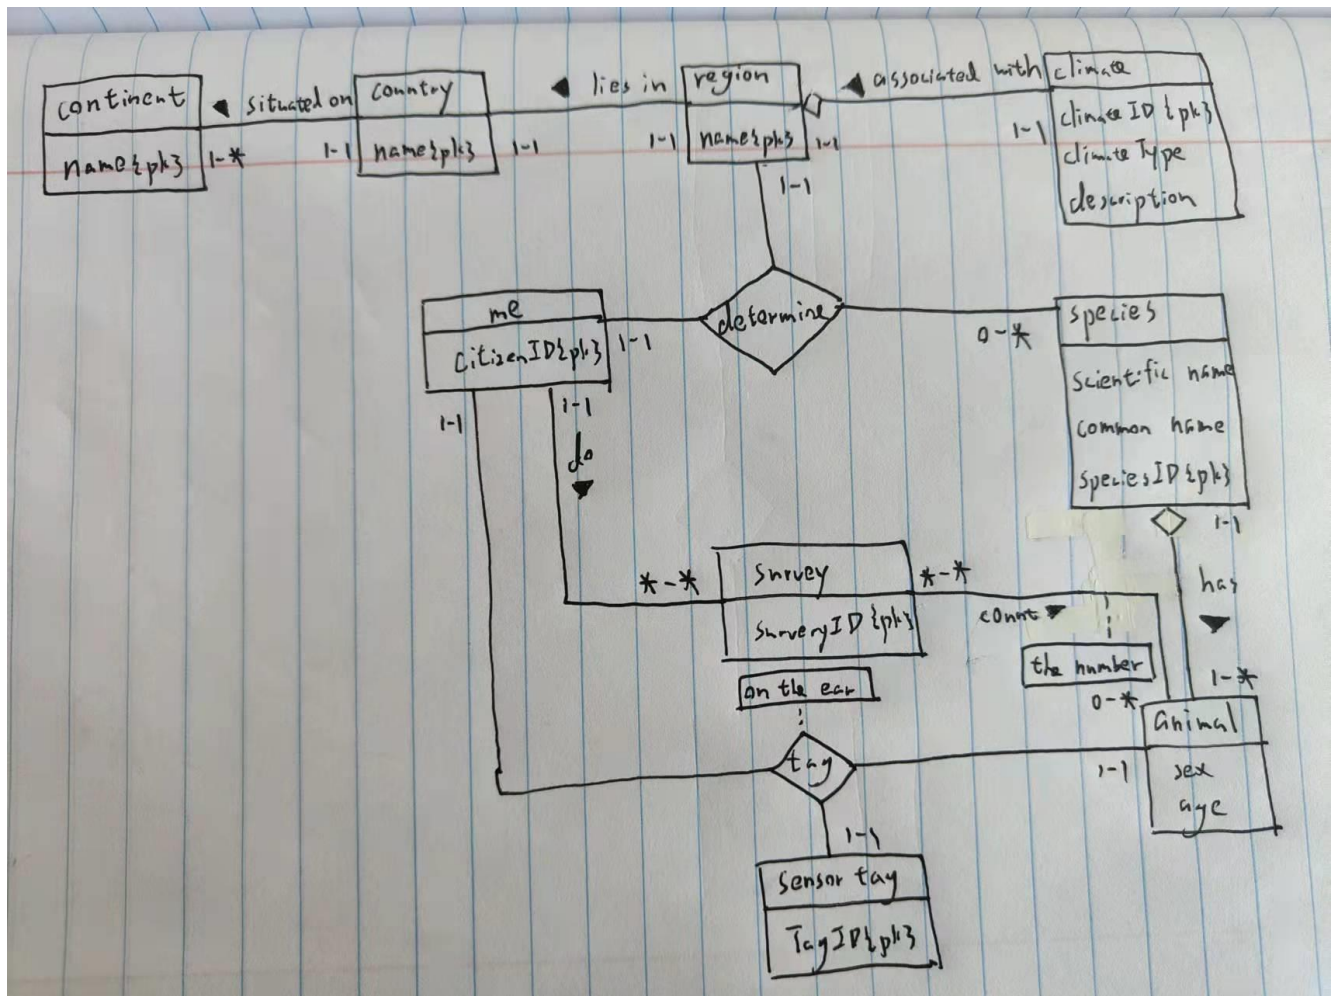 continent
name{pk}
◄ situated on
1-*
1-1
country
name{pk}
◄ lies in
1-1
1-1
region
name{pk}
◄ associated with
1-1
1-1
climate
climate ID {pk}
climate Type
description
1-1
determine
me
citizenID{pk}
1-1
0-*
species
scientific name
common name
speciesID{pk}
1-1
1-1
do
▼
1-1
has
▼
1-*
*-*
survey
surveryID{pk}
*-*
count ►
the number
0-*
on the ear
tag
animal
sex
age
1-1
1-1
sensor tag
TagID{pk}